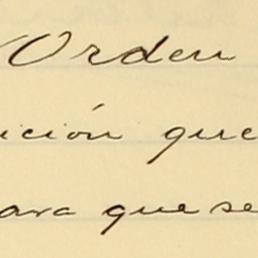 Orden
ición que
para que se